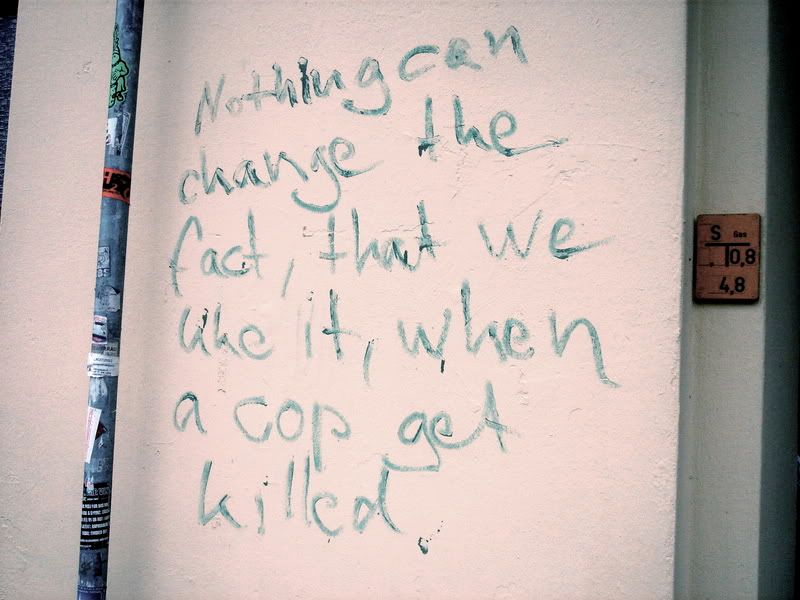 Nothing can
change the
fact, that we
like it, when
a cop get
killed.
S Gas
10,8
4,8